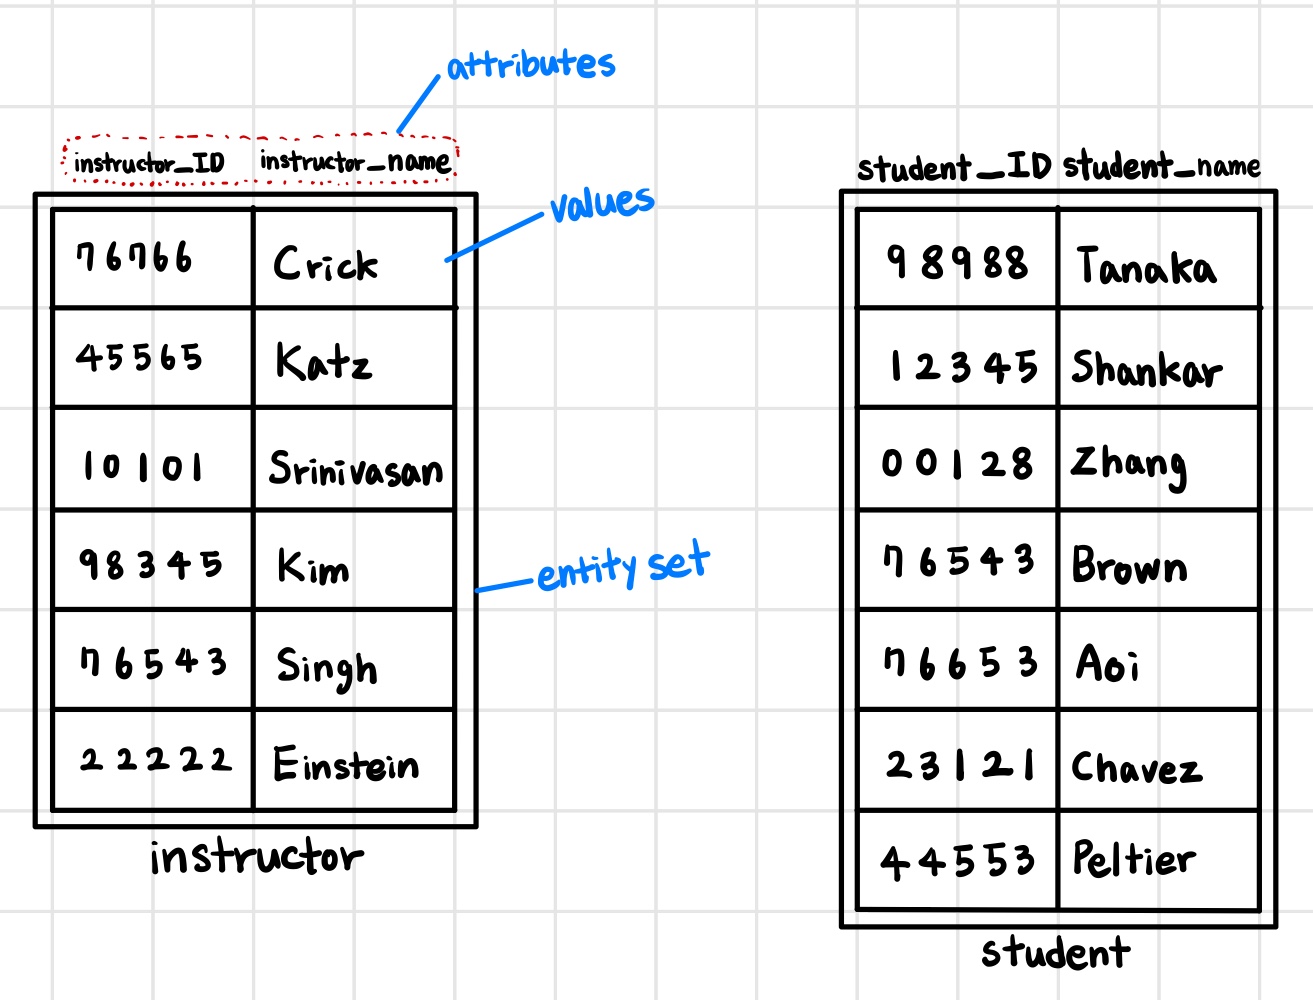 attributes
instructor_ID instructor_name
values
76766 Crick
45565 Katz
10101 Srinivasan
98345 Kim
entity set
76543 Singh
22222 Einstein
instructor
student_ID student_name
98988 Tanaka
12345 Shankar
00128 Zhang
76543 Brown
76653 Aoi
23121 Chavez
44553 Peltier
student